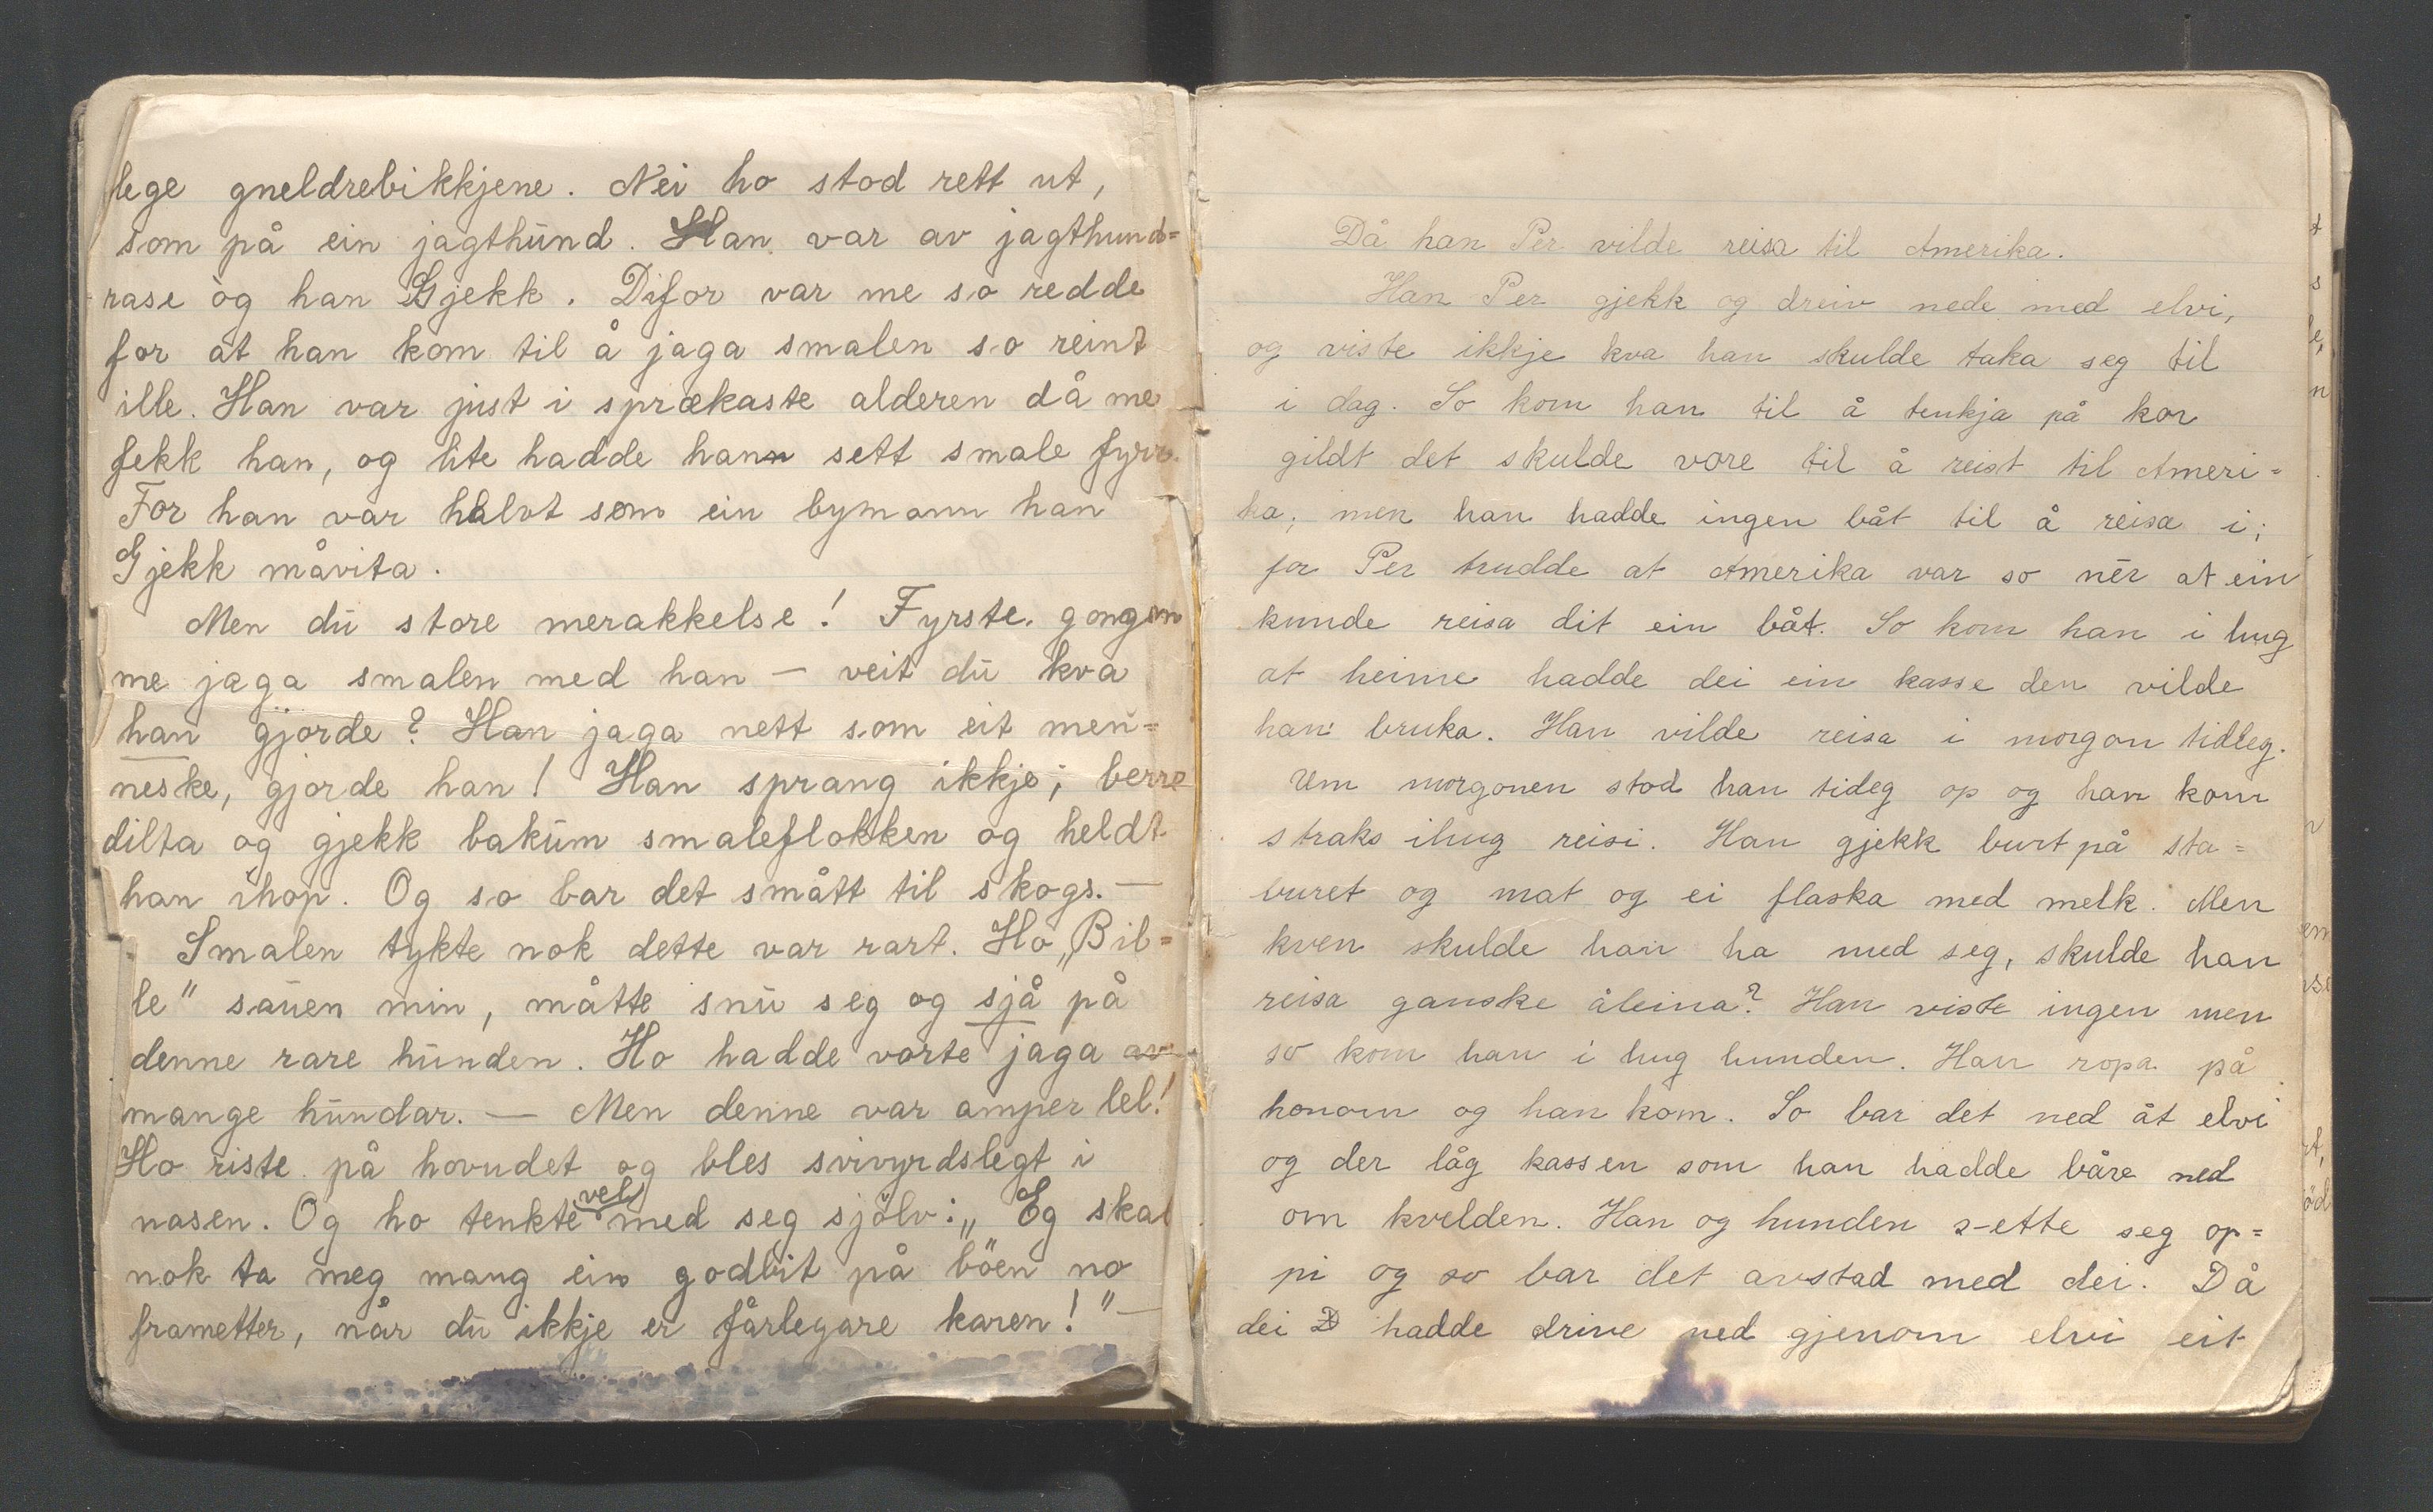 lege gneldrebikkjene. Nei ho stod rett ut,
som på ein jagthund. Han var av jagthund=
rase òg han Gjekk. Difor var me so redde
for at han kom til å jaga smalen so reint
ille. Han var just i sprækaste alderen då me
fekk han, og lite hadde han sett smale fyrr.
For han var halvt som ein bymann han
Gjekk måvita.
Men du store merakkelse! Fyrste gongen
me jaga smalen med han — veit du kva
han gjorde? Han jaga nett som eit men=
neske, gjorde han! Han sprang ikkje; berre
dilta og gjekk bakum smaleflokken og heldt
han ihop. Og so bar det smått til skogs. —
Smalen tykte nok dette var rart. Ho „Bil=
le" sauen min, måtte snu seg og sjå på
denne rare hunden. Ho hadde vorte jaga av
mange hundar. — Men denne var amper lel!
Ho riste på hovudet og bles svivyrdslegt i
nasen. Og ho tenkte vel med seg sjölv: „Eg skal
nok ta meg mang ein godbit på böen no
frametter, når du ikkje er fårlegare karen!" —
Då han Per vilde reisa til Amerika.
Han Per gjekk og dreiv nede med elvi,
og viste ikkje kva han skulde taka seg til
i dag. So kom han til å tenkja på kor
gildt det skulde vore til å reist til Ameri=
ka, men han hadde ingen båt til å reisa i;
for Per trudde at Amerika var so nêr at ein
kunde reisa dit ein båt. So kom han i hug
at heime hadde dei ein kasse den vilde
han bruka. Han vilde reisa i morgon tidleg.
Um morgonen stod han tideg op og han kom
straks ihug reisi. Han gjekk burt på sta=
buret og mat og ei flaska med melk. Men
kven skulde han ha med seg, skulde han
reisa ganske åleina? Han viste ingen men
so kom han i hug hunden. Han ropa på
honom og han kom. So bar det ned åt elvi
og der låg kassen som han hadde båre ned
om kvelden. Han og hunden sette seg op=
pi og so bar det avstad med dei. Då
dei hadde drive ned gjenom elvi eit